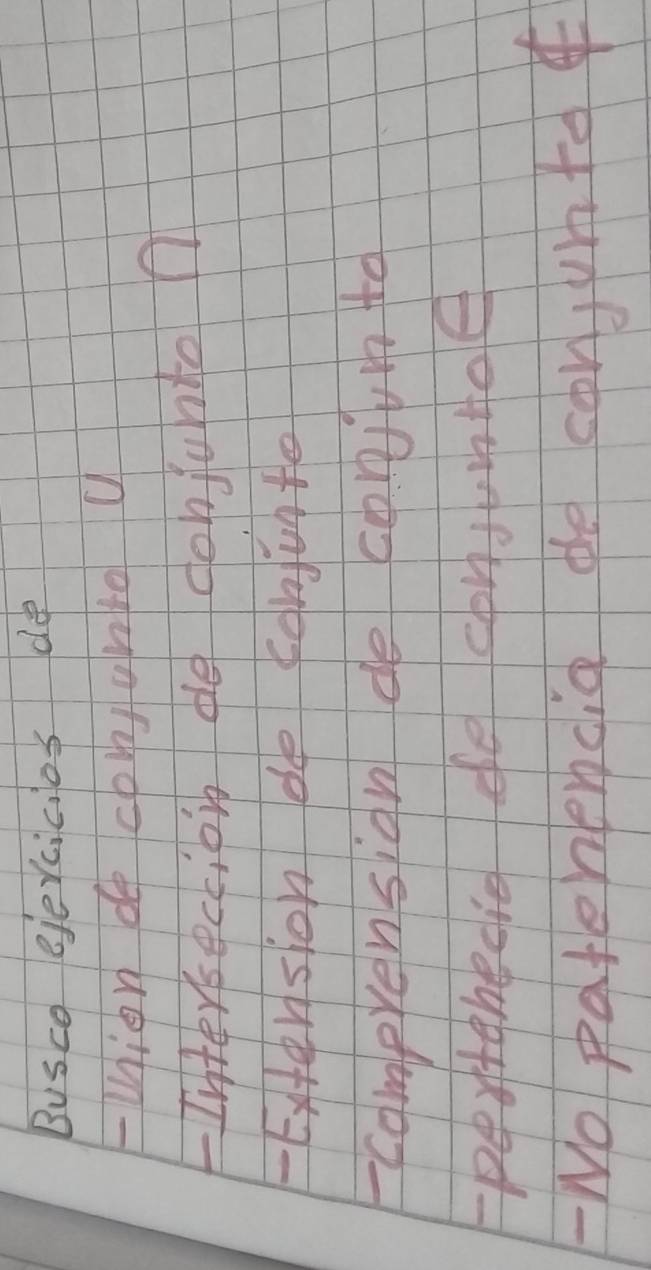 Busco ejercicios de
-Union de conjunto U
-Intersección de conjunto ∩
-Extension de conjunto
-Comprension de conjunto
-pertenecie de conjunto ∈
-No patenencia de conjunto ∉